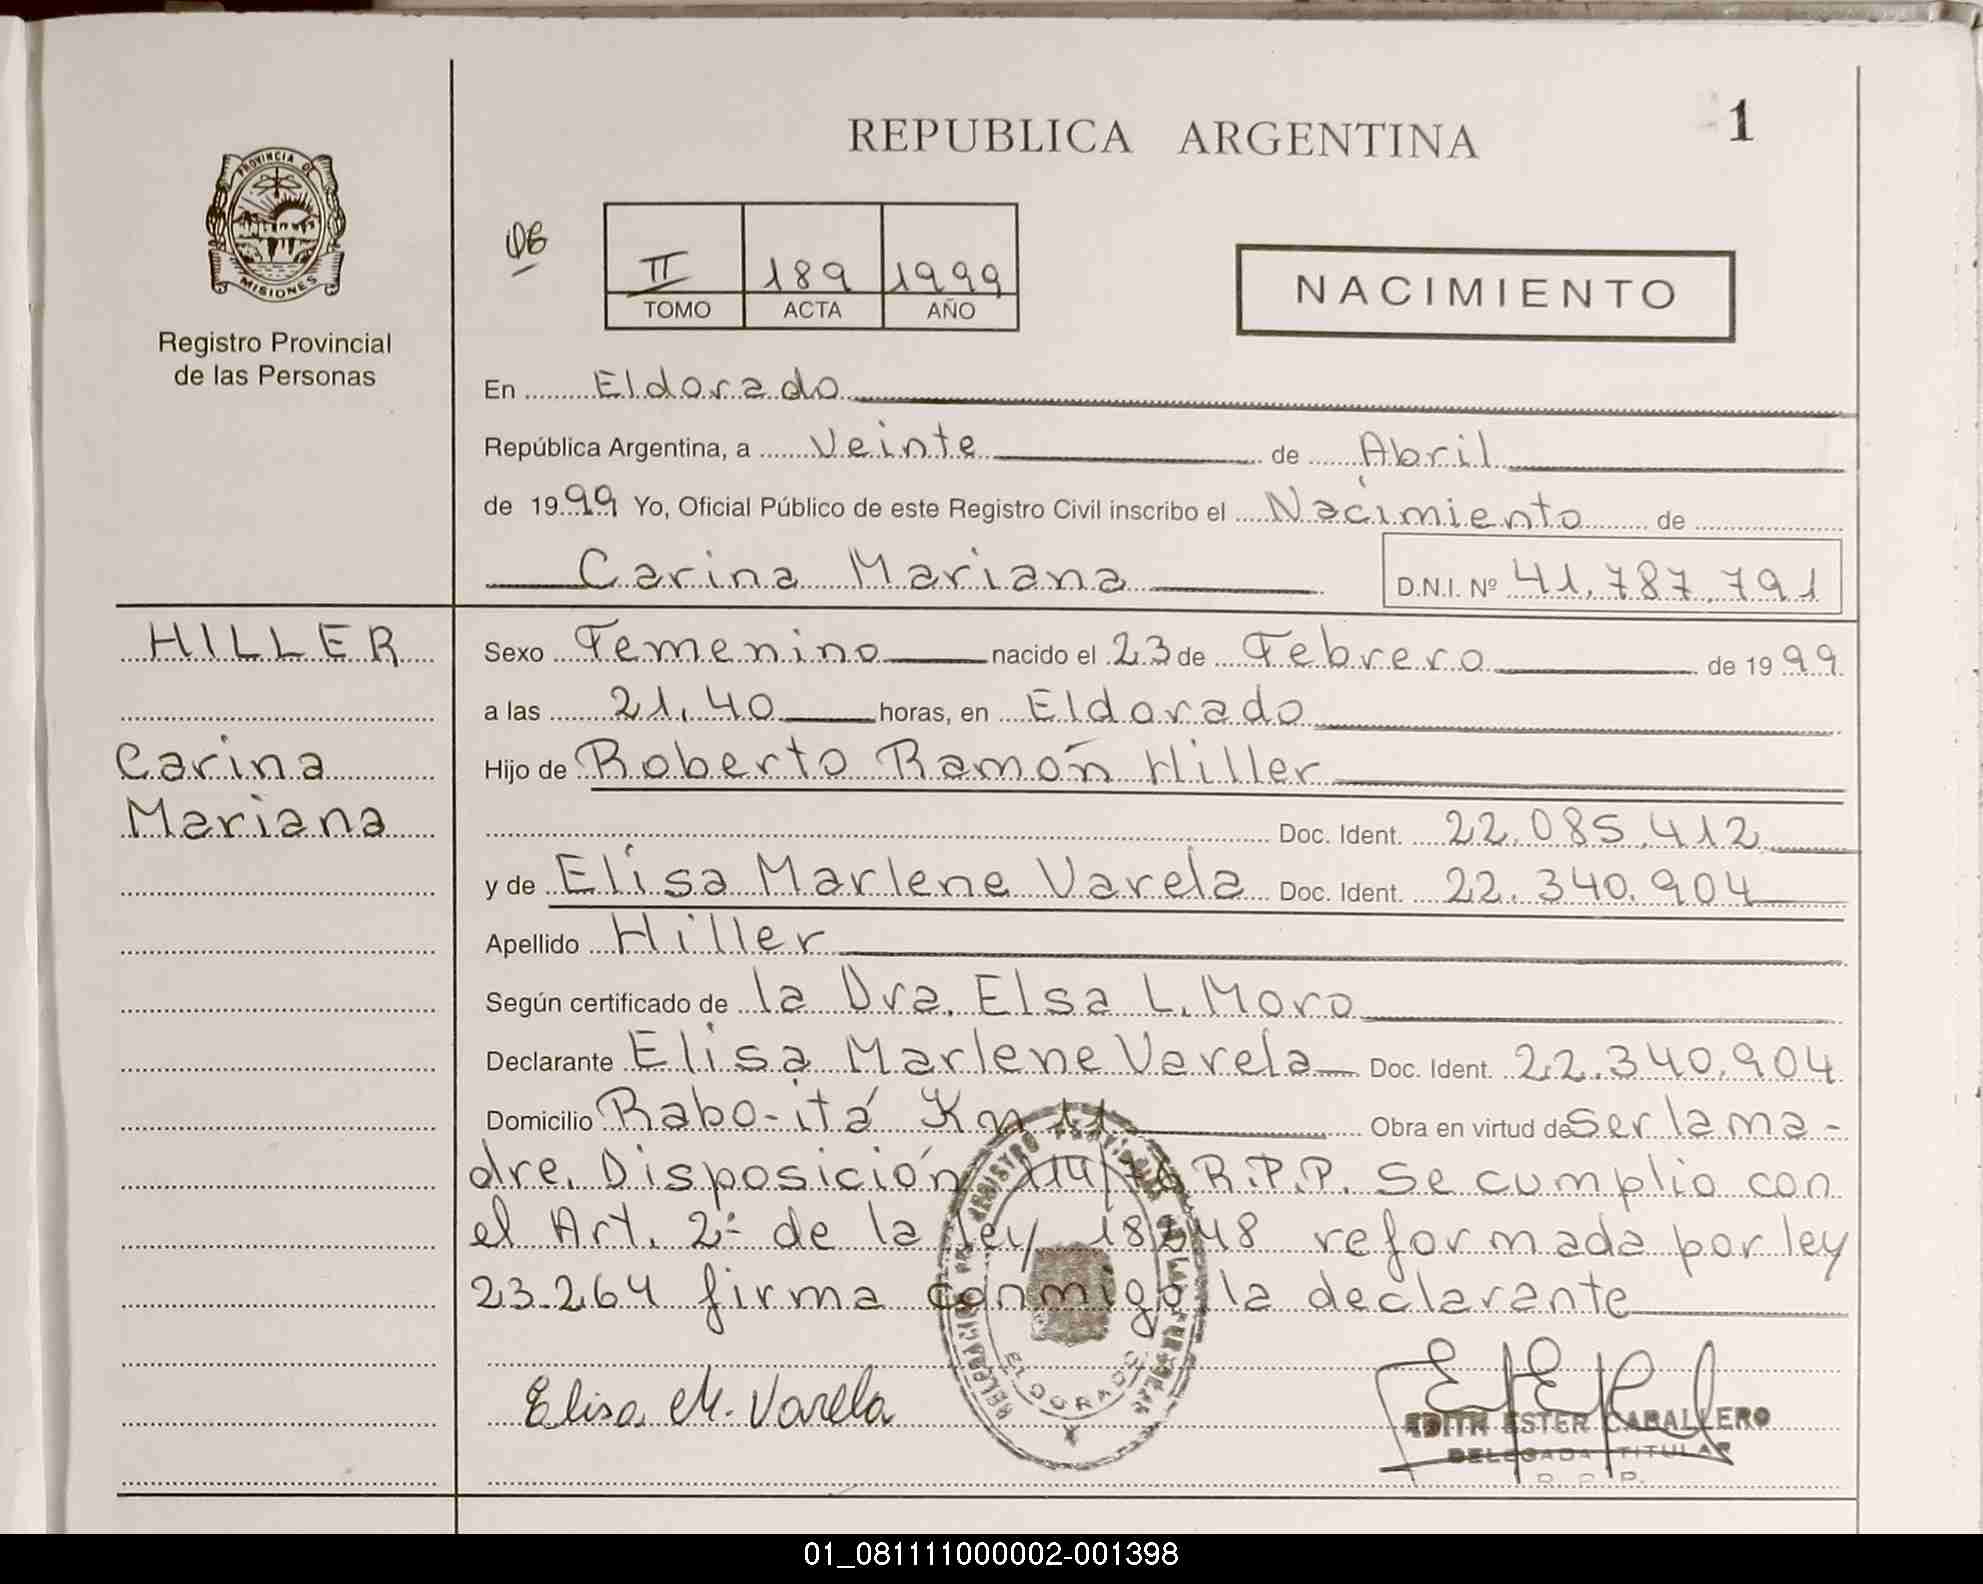 REPUBLICA ARGENTINA
1
PROVINCIA DE
MISIONES
Registro Provincial
de las Personas
II 189 1999
TOMO ACTA AÑO
NACIMIENTO
En Eldorado
República Argentina, a Veinte de Abril
de 1999 Yo, Oficial Público de este Registro Civil inscribo el Nacimiento de
Carina Mariana D.N.I. Nº 41.787.791
HILLER
Carina
Mariana
Sexo Femenino nacido el 23 de Febrero de 1999
a las 21.40 horas, en Eldorado
Hijo de Roberto Ramón Hiller
Doc. Ident. 22.085.412
y de Elisa Marlene Varela Doc. Ident. 22.340.904
Apellido Hiller
Según certificado de la Dra. Elsa L. Moro
Declarante Elisa Marlene Varela Doc. Ident. 22.340.904
Domicilio Rabo-itá Km 11 Obra en virtud de Ser la ma-
dre. Disposición 114/76 R.P.P. Se cumplio con
el Art. 2º de la ley 18248 reformada por ley
23.264 firma conmigo la declarante
Elisa M. Varela
ELDORADO
EDITH ESTER CABALLERO
DELEGADA TITULAR
R. P. P.
01_081111000002-001398